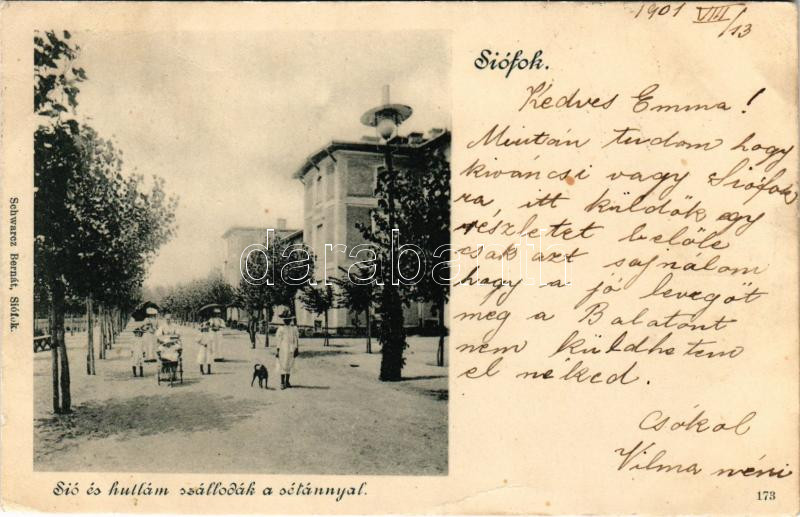 1901 VIII/13
Siófok.
Kedves Emma!
Miután tudom hogy
kiváncsi vagy Siófok
ra, itt küldök egy
részletet belőle
csak azt sajnálom
hogy a jó levegőt
meg a Balatont
nem küldhetem
el neked.
Csókol
Vilma néni
Schwarcz Bernát, Siófok.
darabanth
Sió és hullám szállodák a sétánnyal.
173